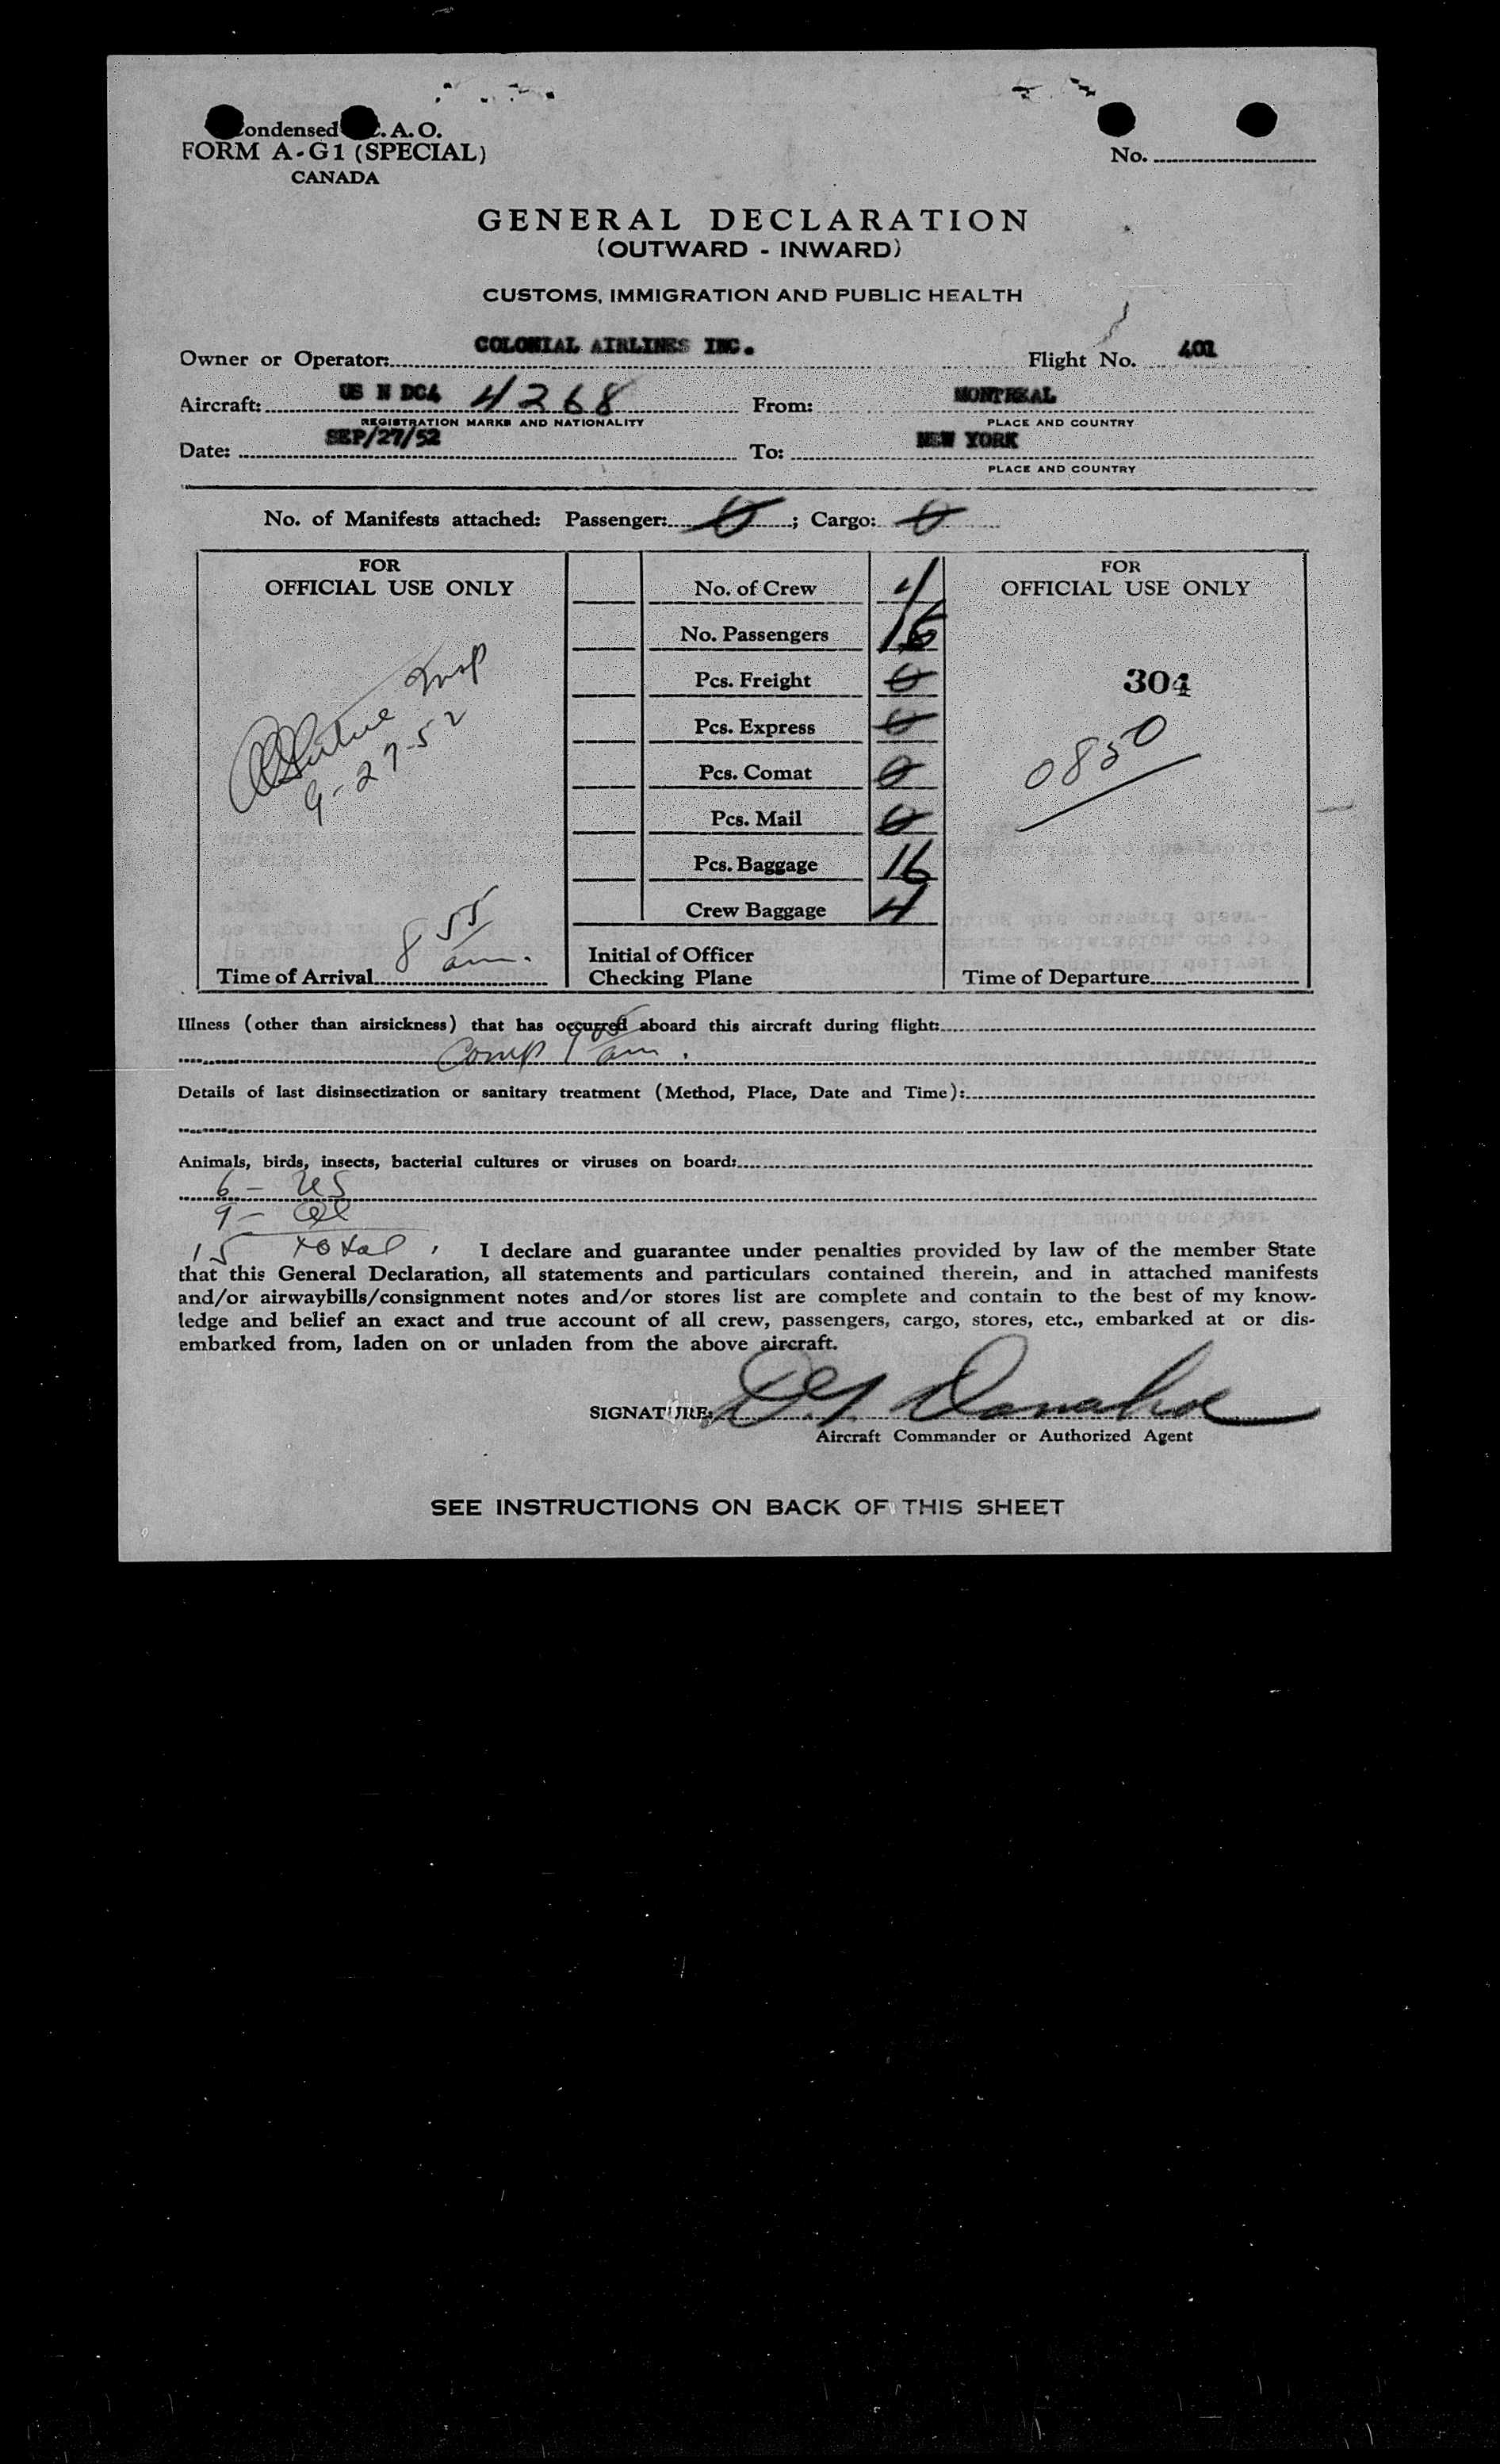 Condensed I.C.A.O.
FORM A-G1 (SPECIAL)
CANADA
No.
GENERAL DECLARATION
(OUTWARD - INWARD)
CUSTOMS, IMMIGRATION AND PUBLIC HEALTH
Owner or Operator: COLONIAL AIRLINES INC. Flight No. 401
Aircraft: US N DC4 4268 From: MONTREAL
REGISTRATION MARKS AND NATIONALITY PLACE AND COUNTRY
Date: SEP/27/52 To: NEW YORK
PLACE AND COUNTRY
No. of Manifests attached: Passenger: 0; Cargo: 0
FOR
OFFICIAL USE ONLY
Insp
9-27-52
8 55
am.
Time of Arrival
No. of Crew 4
No. Passengers
Pcs. Freight 0
Pcs. Express 0
Pcs. Comat 0
Pcs. Mail 0
Pcs. Baggage 16
Crew Baggage 4
Initial of Officer
Checking Plane
FOR
OFFICIAL USE ONLY
304
0850
Time of Departure
Illness (other than airsickness) that has occurred aboard this aircraft during flight:
Comp am.
Details of last disinsectization or sanitary treatment (Method, Place, Date and Time):
Animals, birds, insects, bacterial cultures or viruses on board:
6 - US
9 -
15 total
I declare and guarantee under penalties provided by law of the member State
that this General Declaration, all statements and particulars contained therein, and in attached manifests
and/or airwaybills/consignment notes and/or stores list are complete and contain to the best of my know-
ledge and belief an exact and true account of all crew, passengers, cargo, stores, etc., embarked at or dis-
embarked from, laden on or unladen from the above aircraft.
SIGNATURE: Donahoe
Aircraft Commander or Authorized Agent
SEE INSTRUCTIONS ON BACK OF THIS SHEET